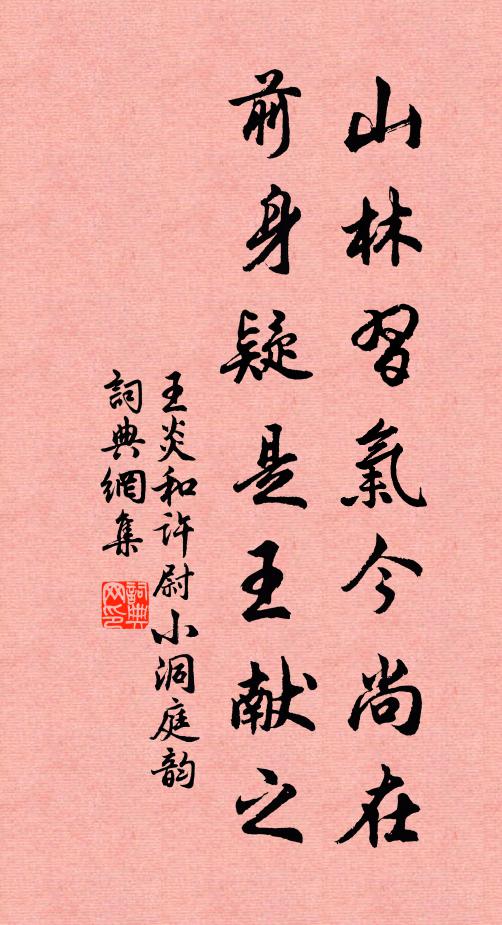 山林習氣今尚在
前身疑是王献之
王炎和許尉小洞庭韵
詞典網集
詞典
网印